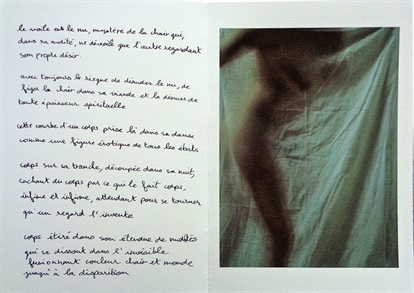 le voile est le nu, mystère de la chair qui,
dans sa nudité, ne dévoile que l'autre regardant
son propre désir.
avec toujours le risque de dénuder le nu, de
figer la chair dans sa viande et la démunir de
toute épaisseur spirituelle
cette courbe d'un corps prise là dans sa danse
comme une figure érotique de tous les écarts
corps sur sa tranche, découpée dans sa nuit,
cachant du corps par ce qui le fait corps,
infine et infime, attendant pour se tourner
qu'un regard l'invente
corps étiré dans son étendue de nudités
qui se dissout dans l'invisible
fusionnant couleur chair et monde
jusqu'à la disparition